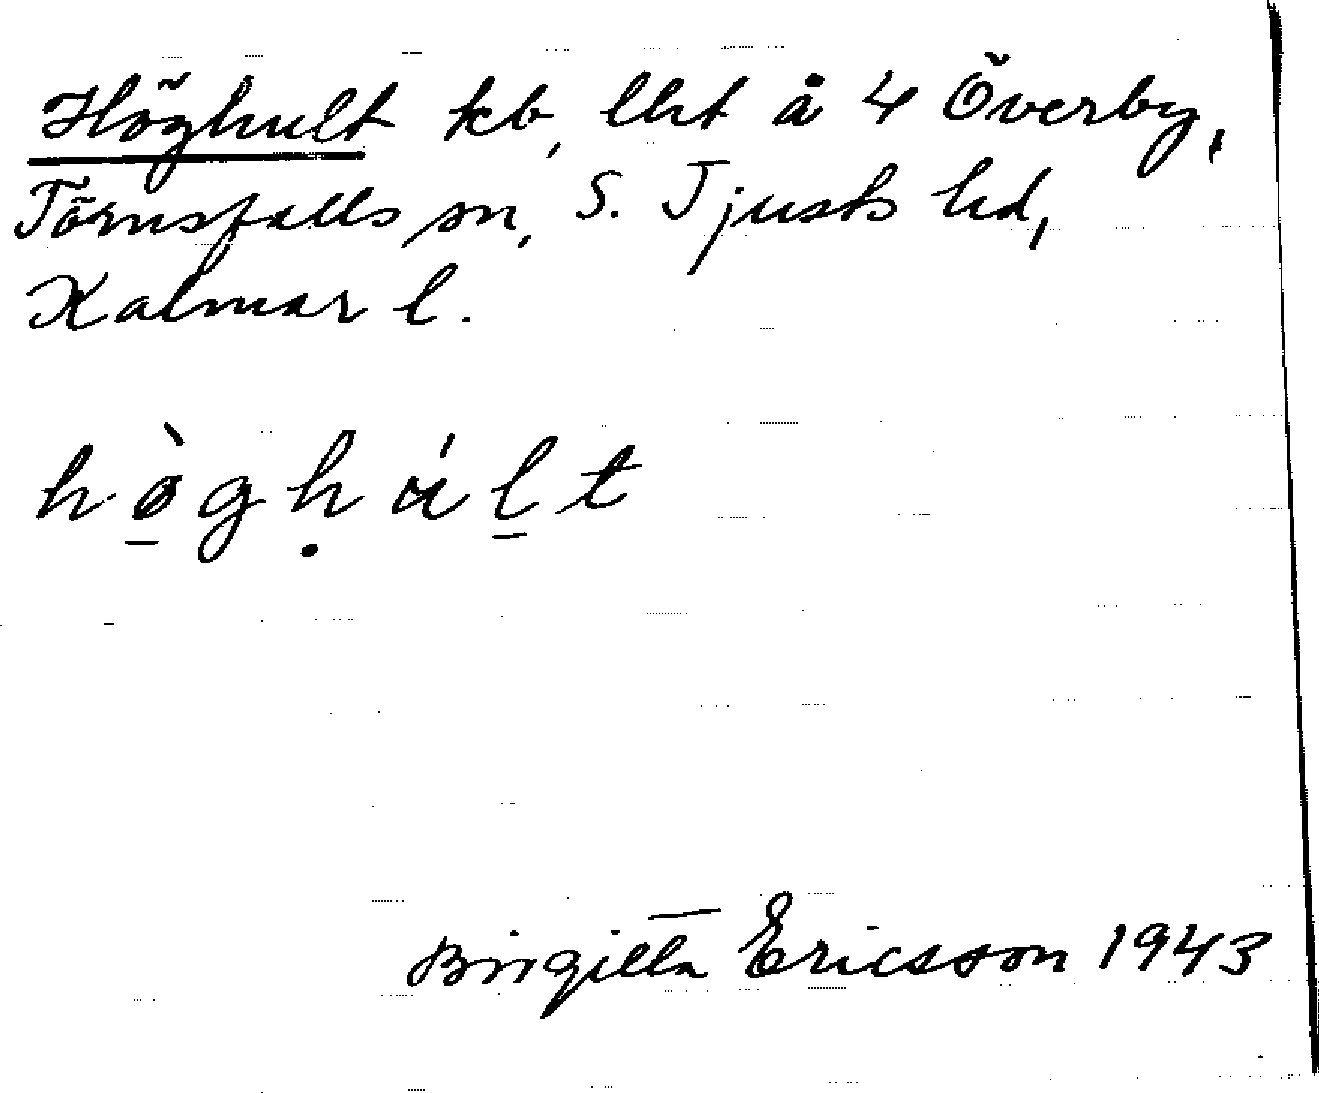 Höghult kb, lht å 4 Överby,
Törnsfalls sn, S. Tjusts hd,
Kalmar l.
hø̱̀gḥúḻt
Birgitta Ericsson 1943